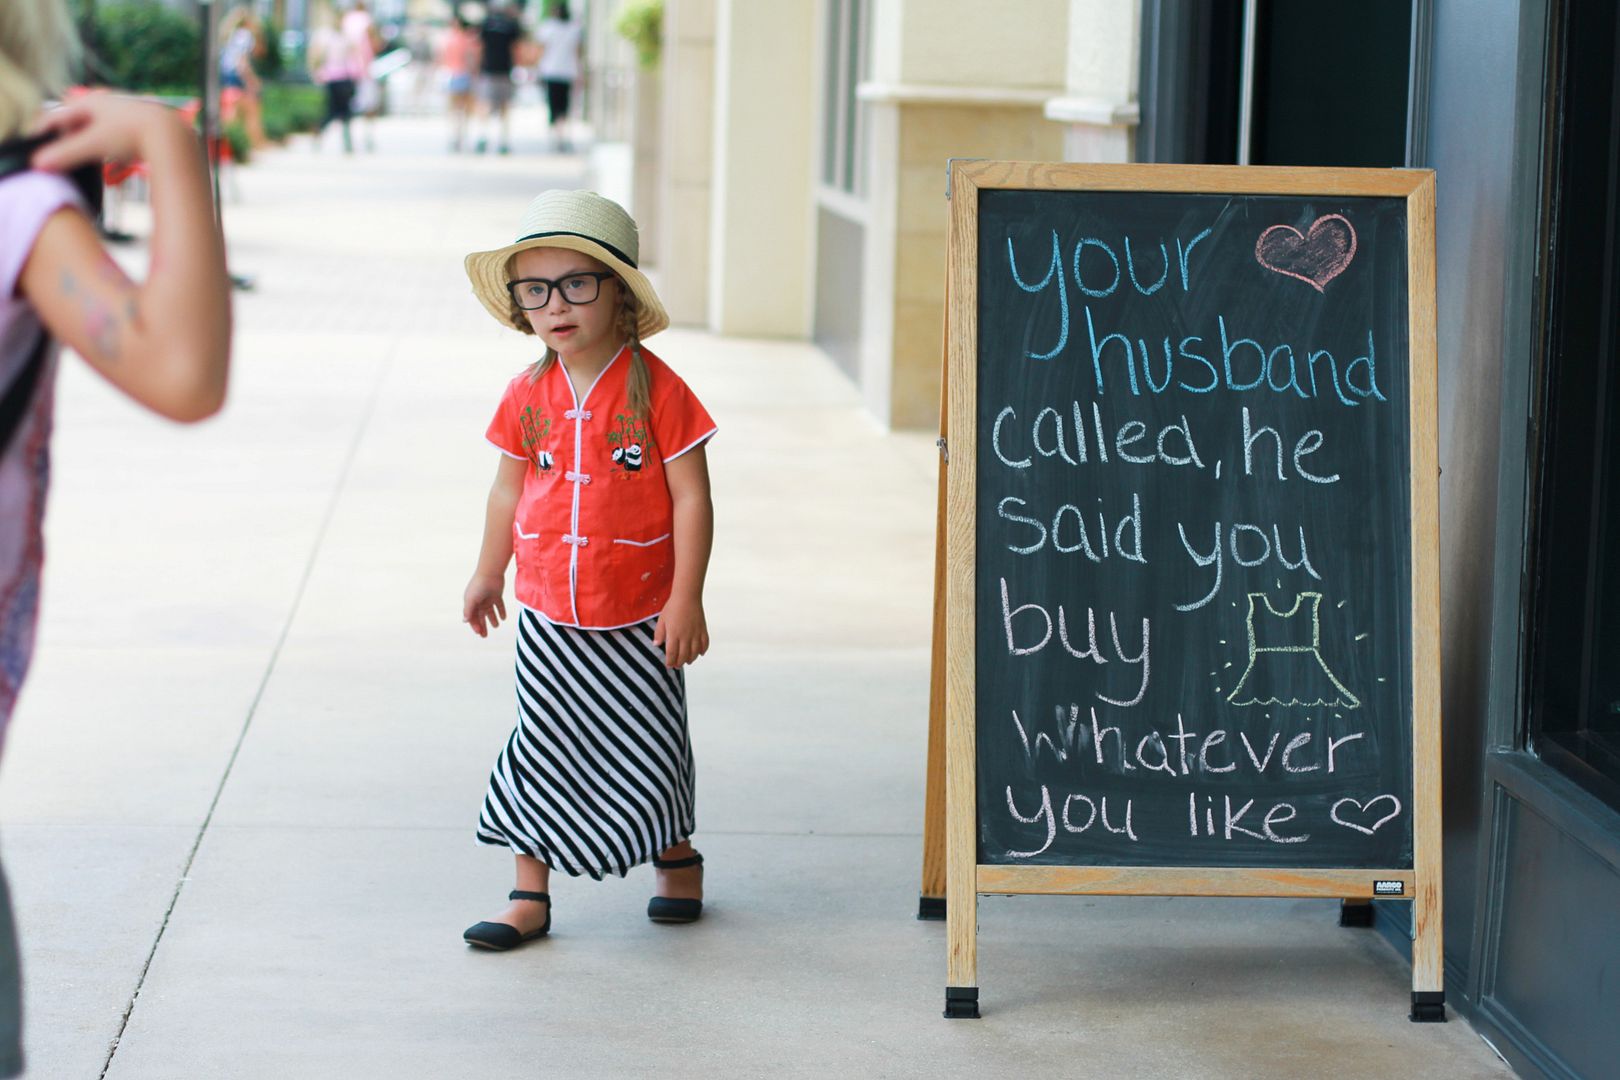 your
husband
called, he
said you
buy
whatever
you like
AARCO